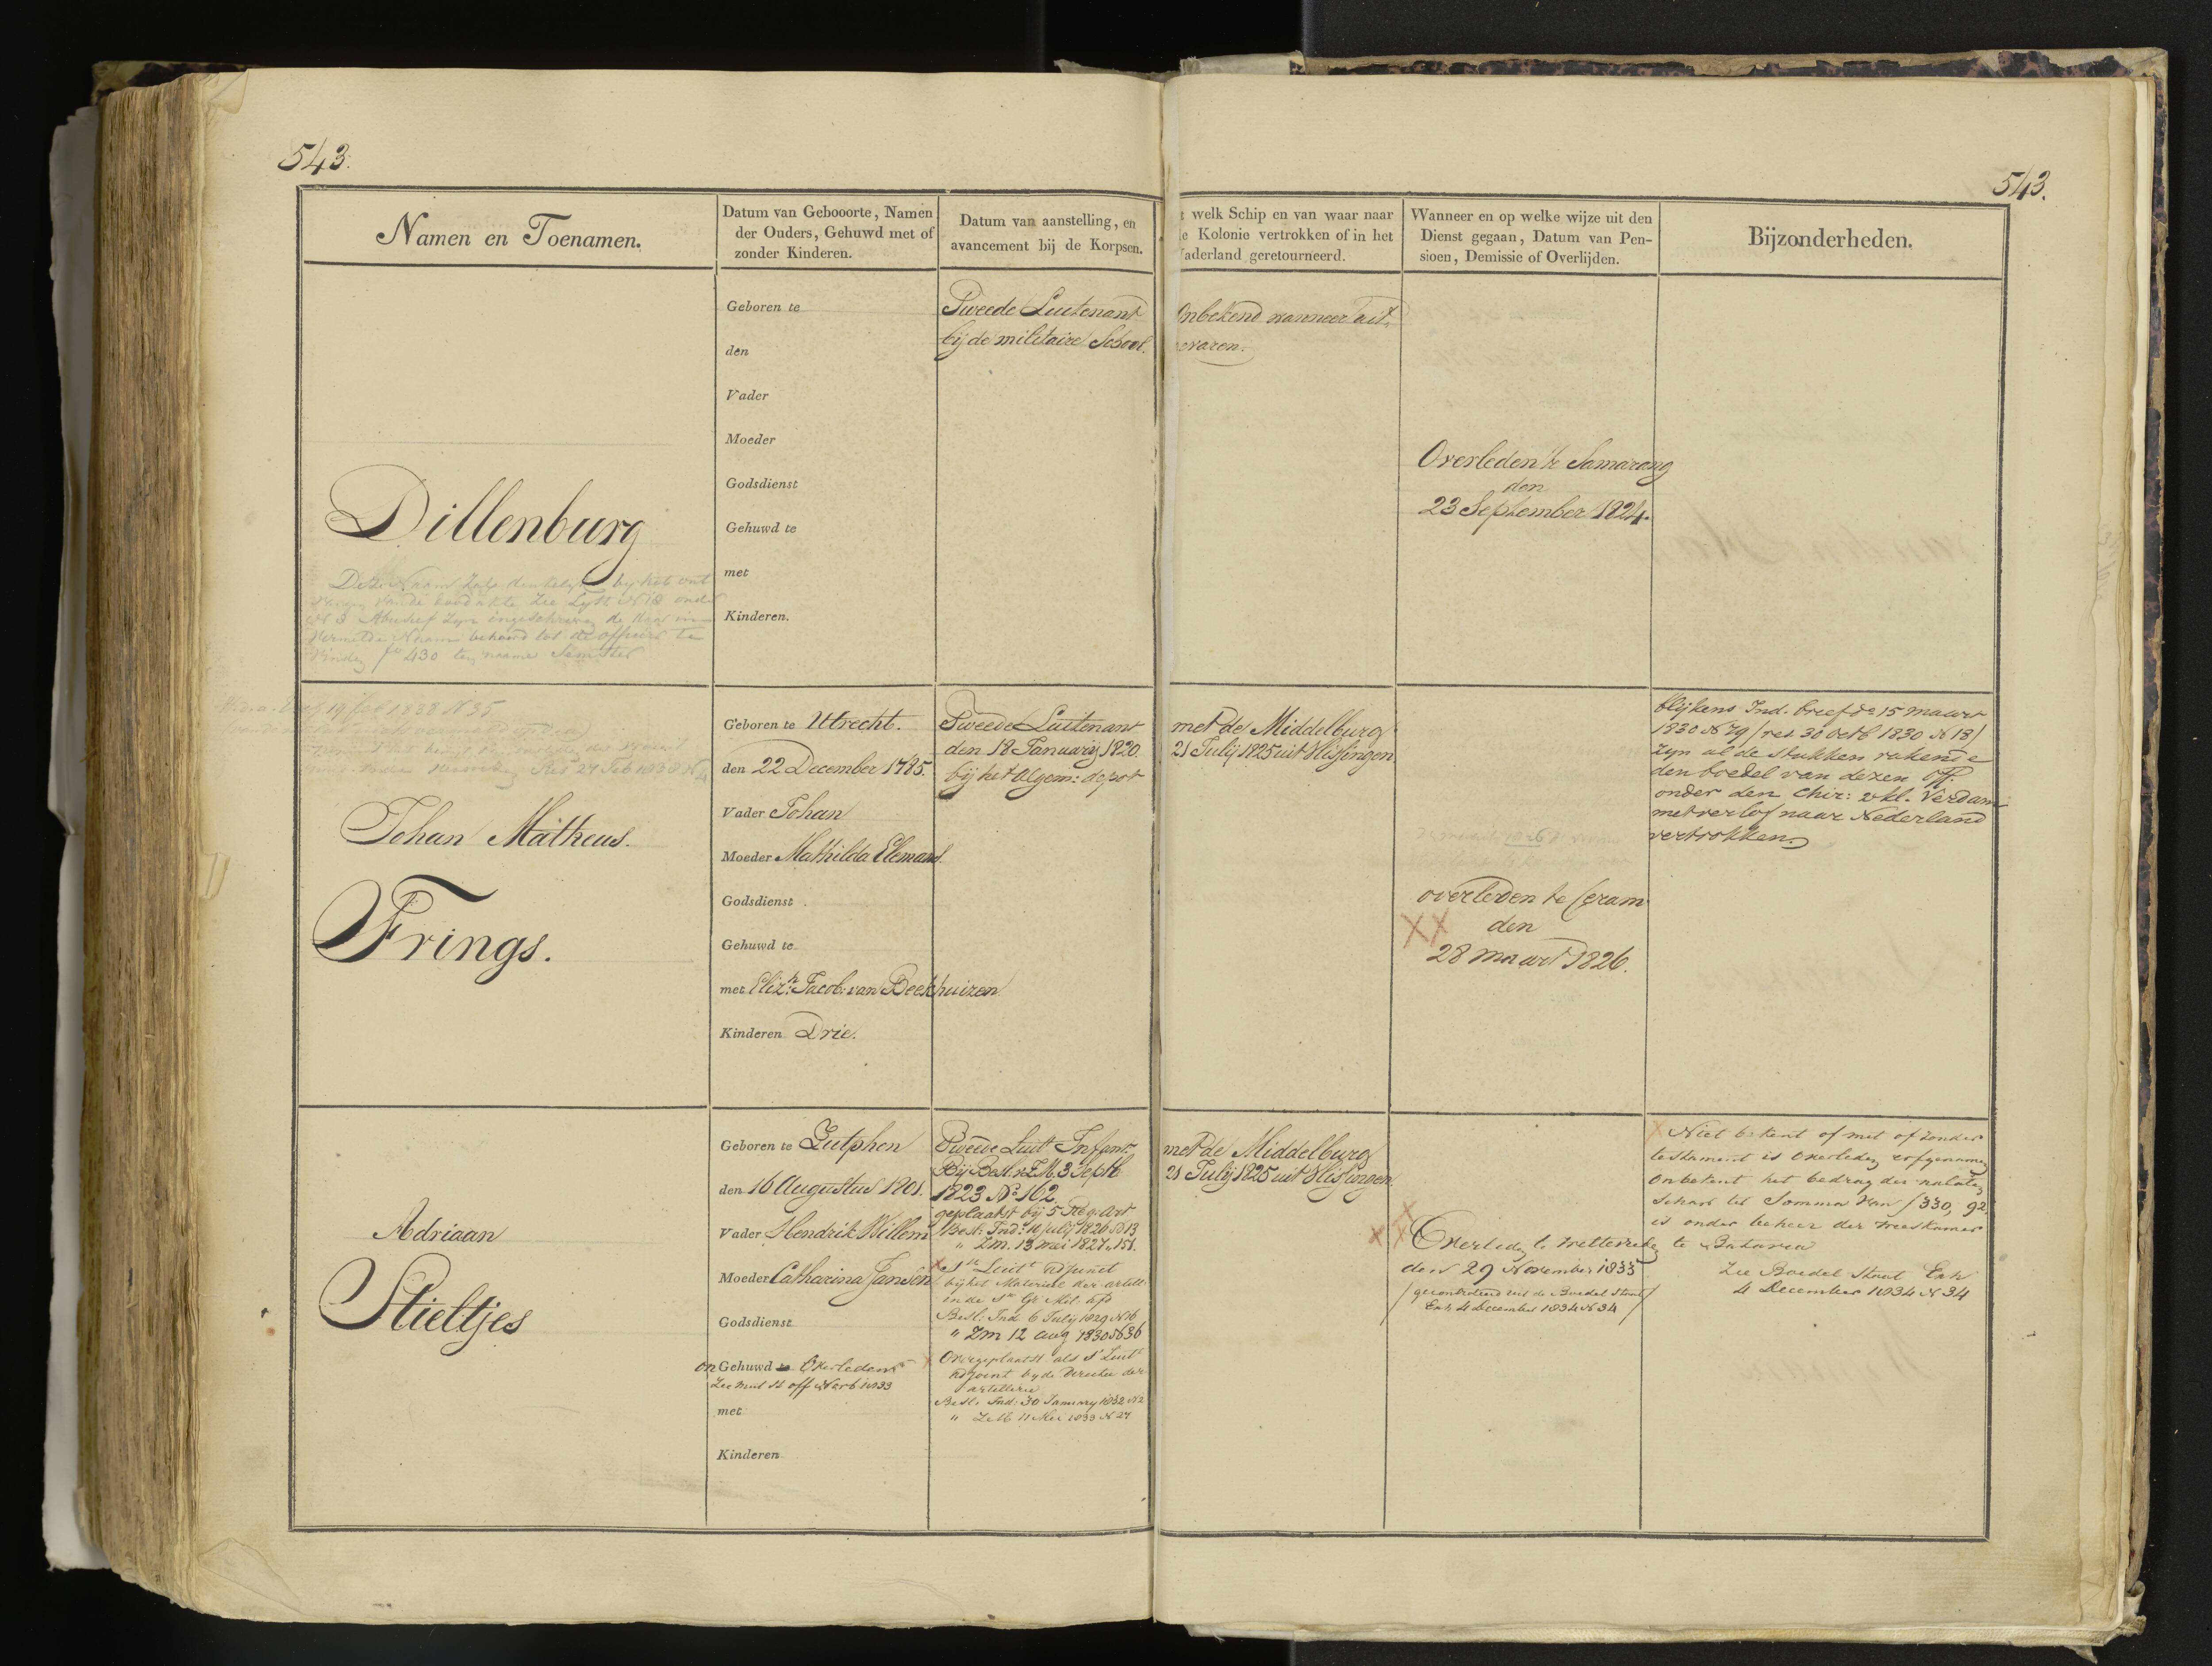 543.
543.
Namen en Toenamen.
Datum van Gebooorte, Namen
der Ouders, Gehuwd met of
zonder Kinderen.
Datum van aanstelling, en
avancement bij de Korpsen.
welk Schip en van waar naar
e Kolonie vertrokken of in het
aderland geretourneerd.
Wanneer en op welke wijze uit den
Dienst gegaan, Datum van Pen-
sioen, Demissie of Overlijden.
Bijzonderheden.
Dillenburg
Deze Naam by het
N 3
behoord tot de officier te
fo 430
Geboren te
den
Vader
Moeder
Godsdienst
Gehuwd te
met
Kinderen.
Tweede Luitenant
bij de militaire School.
Onbekend wanneer uit-
evaren.
Overleden te Samarang
den
23 September 1824.
19 feb 1838 N 35
Res 27 Feb 1838 N
Johan Matheus.
Frings.
Geboren te Utrecht.
den 22 December 1785.
Vader Johan
Moeder Mathilda Elemans.
Godsdienst
Gehuwd te
met Eliz: Jacob: van Beekhuizen
Kinderen Drie.
Tweede Luitenant
den 18 January 1820.
bij het algem: depot
met de Middelburg
21 Julij 1825 uit Vlissingen
overleden te Ceram
XX den
28 maart 1826.
blijkens Ind. brief do 15 maart
1830 N 79 / res 30 octb 1830 N 18/
zyn al de stukken rakende
den boedel van dezen off.
onder den Chir: 2 kl. Verdam
met verlof naar Nederland
vertrokken.
Adriaan
Stieltjes
Geboren te Zutphen
den 16 Augustus 1801.
Vader Hendrik Willem
Moeder Catharina Jansen
Godsdienst
on Gehuwd te Overleden
Zie off 1833
met
Kinderen
Tweede Luit Infant:
Bij Besl: v Z.M. 3 Septb
1823 No 162.
geplaatst bij 5 Reg: Art
Besl: Ind: 10 Julij 1826 N 13
" Zm. 13 mei 1827 „ 151.
X 1e Luit Adjunct
bij het Materieel der artill:
in de 1e Gr Mil: Afd
Besl: Ind 6 July 1829 N 16
" Zm 12 aug 1830 N 36
X Overgeplaatst als 1e Luit
Adjoint by de Directie der
artillerie
Besl. Ind: 30 January 1832 N 2
" ZM 11 Mei 1833 N 27
met de Middelburg
21 Julij 1825 uit Vlissingen.
X XX
Overleden te Weltevreden
den 29 November 1833
/ gecontroleerd uit de Boedel Staat /
Exh 4 December 1834 N 34
X Niet bekent of met of zonder
testament is Overleden
Onbekent het bedrag der nalaten
schap ter Somma van f 330, 92
is onder beheer der weeskamer
te Batavia
Zie Boedel Staat Exh
4 December 1834 N 34